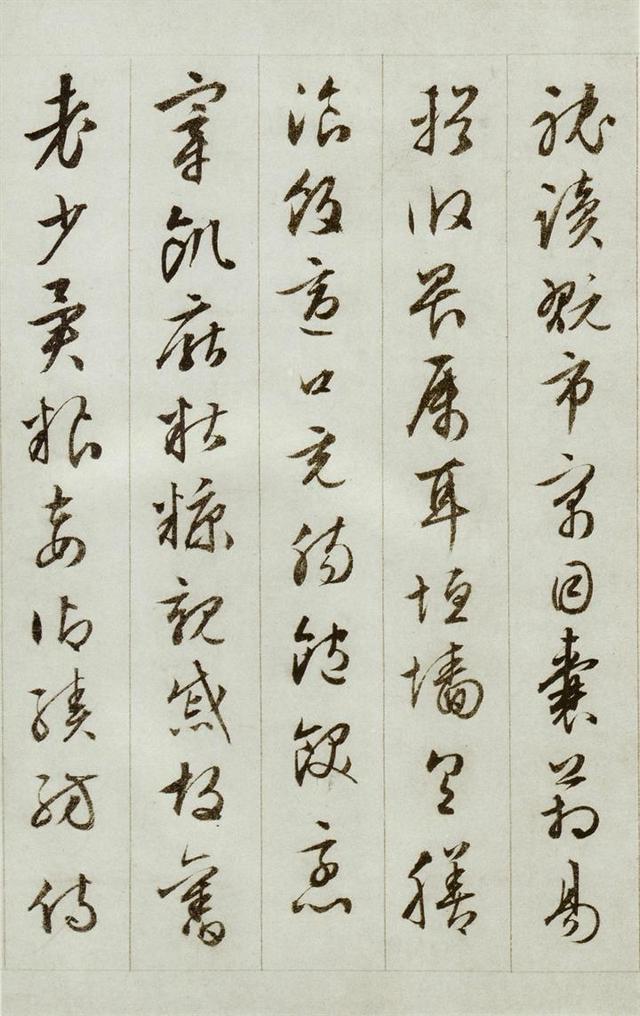 耽讀翫市寓目囊箱易
輶攸畏屬耳垣墻具膳
湌飯適口充腸飽飫烹
宰飢厭糟糠親戚故舊
老少異粮妾御績紡侍